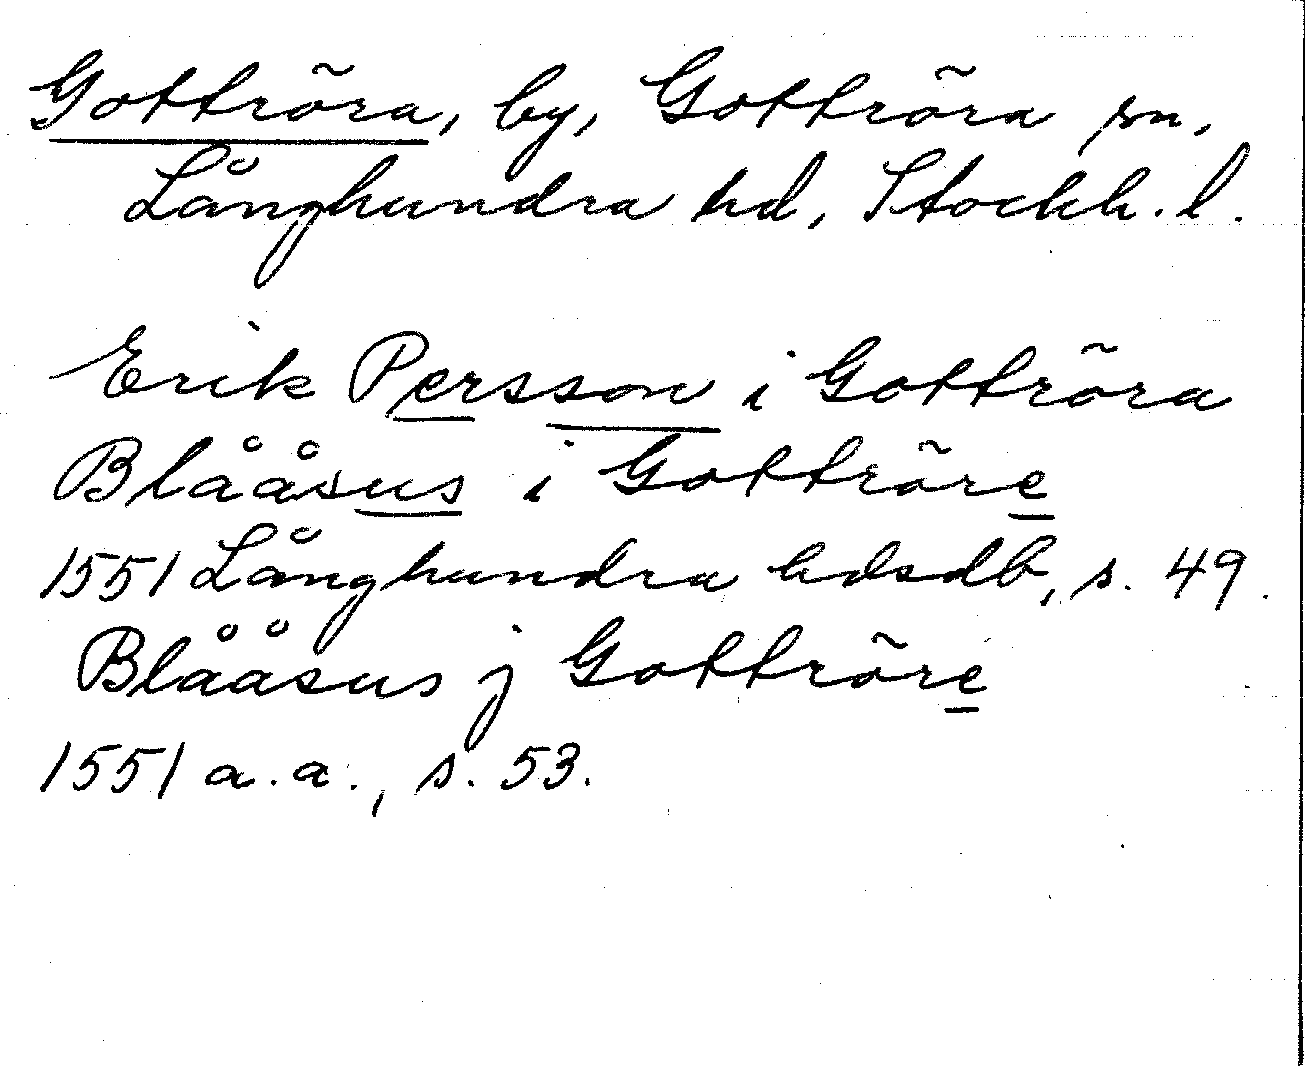 Gottröra, by, Gottröra sn,
Långhundra hd, Stockh. l.
Erik Persson i Gottröra
Blååsus i Gottröre
1551 Långhundra hdsdb, s. 49.
Blååsus j Gottröre
1551 a.a., s. 53.